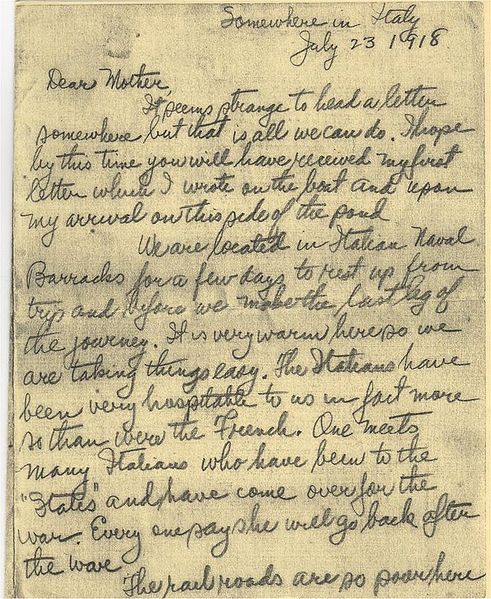 Somewhere in Italy
July 23 1918
Dear Mother,
It seems strange to head a letter
somewhere but that is all we can do. I hope
by this time you will have received my first
letter which I wrote on the boat and upon
my arrival on this side of the pond
We are located in Italian Naval
Barracks for a few days to rest up from
trip and before we make the last leg of
the journey. It is very warm here so we
are taking things easy. The Italians have
been very hospitable to us in fact more
so than were the French. One meets
many Italians who have been to the
"States" and have come over for the
war. Every one says he will go back after
the ware
The railroads are so poor here